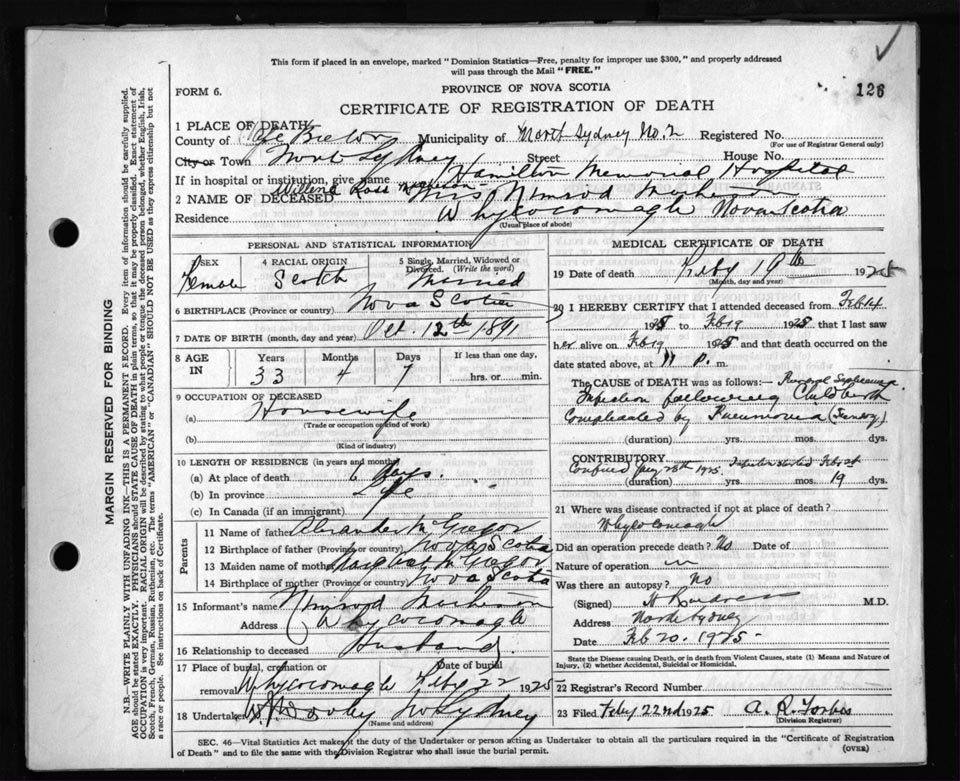 This form if placed in an envelope, marked "Dominion Statistics—Free, penalty for improper use $300," and properly addressed
will pass through the Mail "FREE."
FORM 6.
PROVINCE OF NOVA SCOTIA
126
CERTIFICATE OF REGISTRATION OF DEATH
MARGIN RESERVED FOR BINDING
N.B.—WRITE PLAINLY WITH UNFADING INK—THIS IS A PERMANENT RECORD. Every item of information should be carefully supplied.
AGE should be stated EXACTLY. PHYSICIANS should STATE CAUSE OF DEATH in plain terms, so that it may be properly classified. Exact statement of
OCCUPATION is very important. RACIAL ORIGIN will be described by stating to what people or tongue the deceased person belonged, whether English, Irish,
Scotch, French, German, Russian, Ruthenian, etc. The terms "AMERICAN" or "CANADIAN" SHOULD NOT BE USED as they express citizenship but not
a race or people. See instructions on back of Certificate.
1 PLACE OF DEATH
County of Cape Breton Municipality of North Sydney No. 2 Registered No.
(For use of Registrar General only)
City or Town North Sydney Street House No.
If in hospital or institution, give name Hamilton Memorial Hospital
Willena Ross
2 NAME OF DECEASED Mrs Nimrod
Residence Whycocomagh Nova Scotia
(Usual place of abode)
PERSONAL AND STATISTICAL INFORMATION
3 SEX 4 RACIAL ORIGIN 5 Single, Married, Widowed or
Divorced. (Write the word)
Female Scotch Married
6 BIRTHPLACE (Province or country) Nova Scotia
7 DATE OF BIRTH (month, day and year) Oct. 12th 1891
8 AGE IN Years Months Days If less than one day,
33 4 7 hrs. or min.
9 OCCUPATION OF DECEASED
(a) Housewife
(Trade or occupation or kind of work)
(b)
(Kind of industry)
10 LENGTH OF RESIDENCE (in years and months)
(a) At place of death 6 Days.
(b) In province Life
(c) In Canada (if an immigrant)
Parents
11 Name of father Alexander McGregor
12 Birthplace of father (Province or country) Nova Scotia
13 Maiden name of mother Margaret McGregor
14 Birthplace of mother (Province or country) Nova Scotia
15 Informant's name Nimrod
Address Whycocomagh
16 Relationship to deceased Husband
17 Place of burial, cremation or Date of burial
removal Whycocomagh Feby 22 1925
18 Undertaker N Sydney
(Name and address)
MEDICAL CERTIFICATE OF DEATH
19 Date of death Feby 19th 1925
(Month, day and year)
20 I HEREBY CERTIFY that I attended deceased from Feb 14
1925 to Feb 19 1925 that I last saw
her alive on Feb 19 1925 and that death occurred on the
date stated above, at 11 p. m.
The CAUSE OF DEATH was as follows:— Puerperal Septicaemia
Infection following Childbirth
Complicated by Pneumonia
(duration) yrs. mos. dys.
CONTRIBUTORY
Confined Jany 28th 1925. Infection started
(duration) yrs. mos. 19 dys.
21 Where was disease contracted if not at place of death?
Whycocomagh
Did an operation precede death? No Date of
Nature of operation
Was there an autopsy? No
(Signed) M.D.
Address North Sydney
Date Feb 20. 1925
State the Disease causing Death, or in death from Violent Causes, state (1) Means and Nature of
Injury, (2) whether Accidental, Suicidal or Homicidal.
22 Registrar's Record Number
23 Filed Feby 22nd 1925 A. R. Forbes
(Division Registrar)
SEC. 46—Vital Statistics Act makes it the duty of the Undertaker or person acting as Undertaker to obtain all the particulars required in the "Certificate of Registration
of Death" and to file the same with the Division Registrar who shall issue the burial permit.
(OVER)